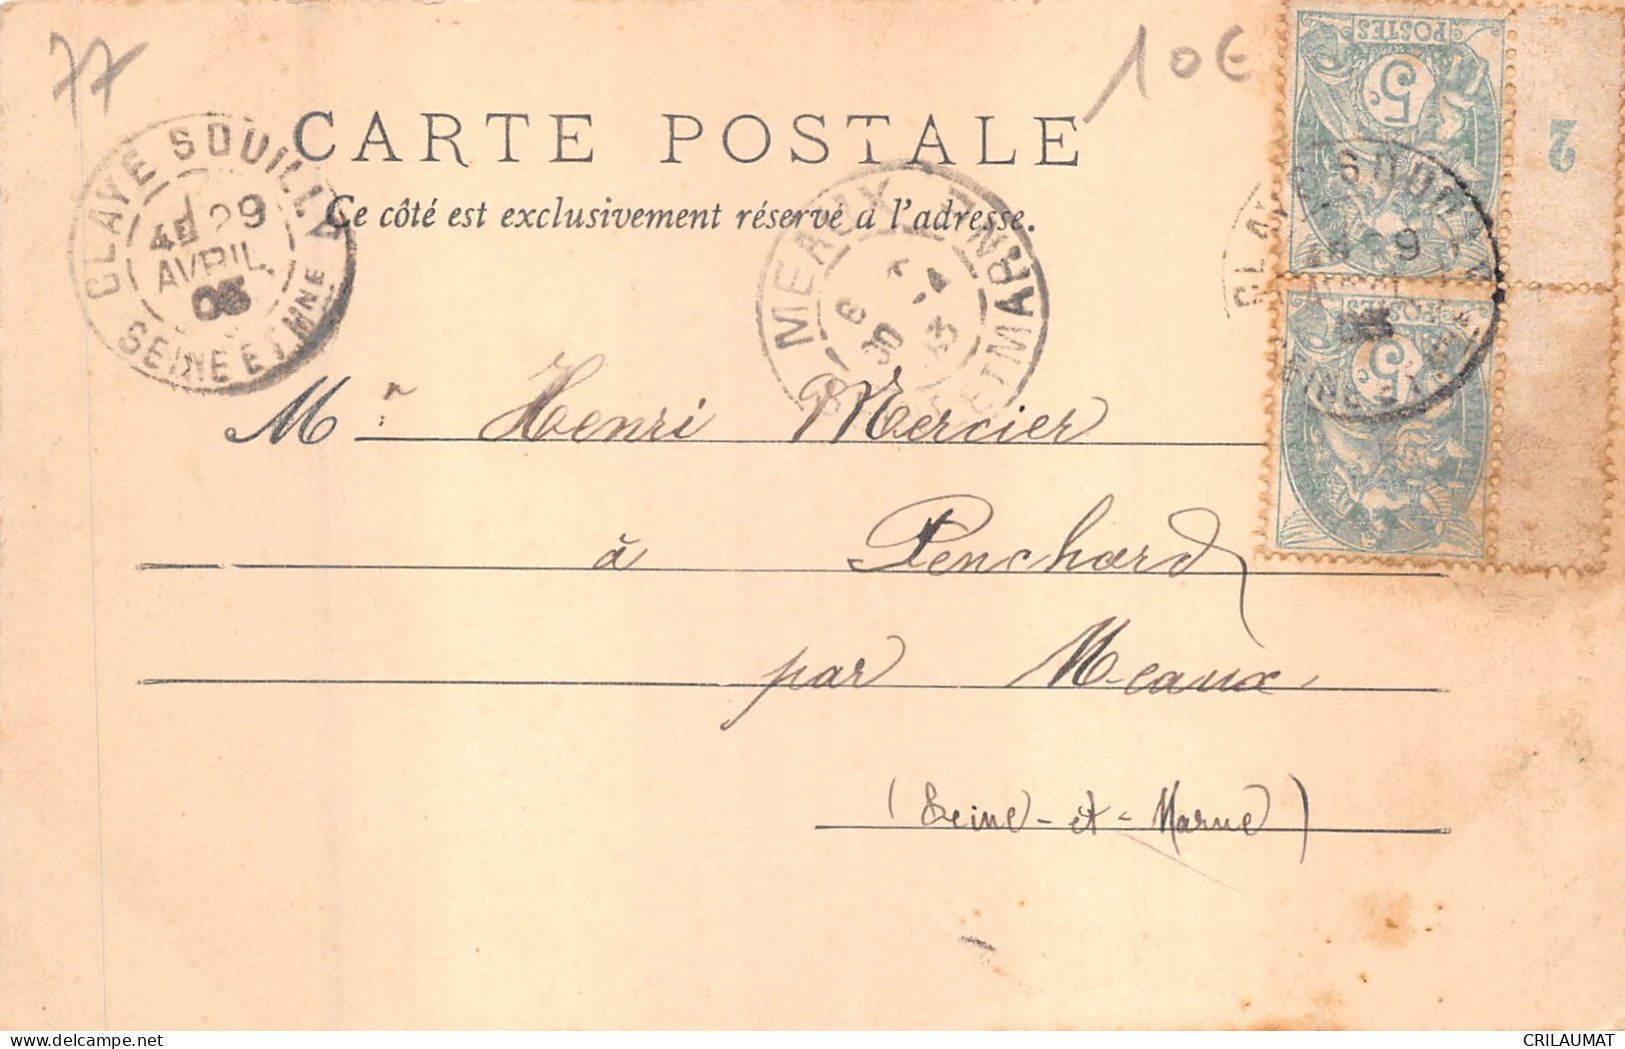 77
10€
CARTE POSTALE
Ce côté est exclusivement réservé à l'adresse.
CLAYE SOUILLY
4E 29
AVRIL
03
SEINE ET MNE
MEAUX
ET MARNE
6
30
POSTES
5
2
CLAYE SOUILLY
POSTES
5
Mr Henri Mercier
à Penchard
par Meaux
(Seine-et-Marne)
delcampe.net
CRILAUMAT